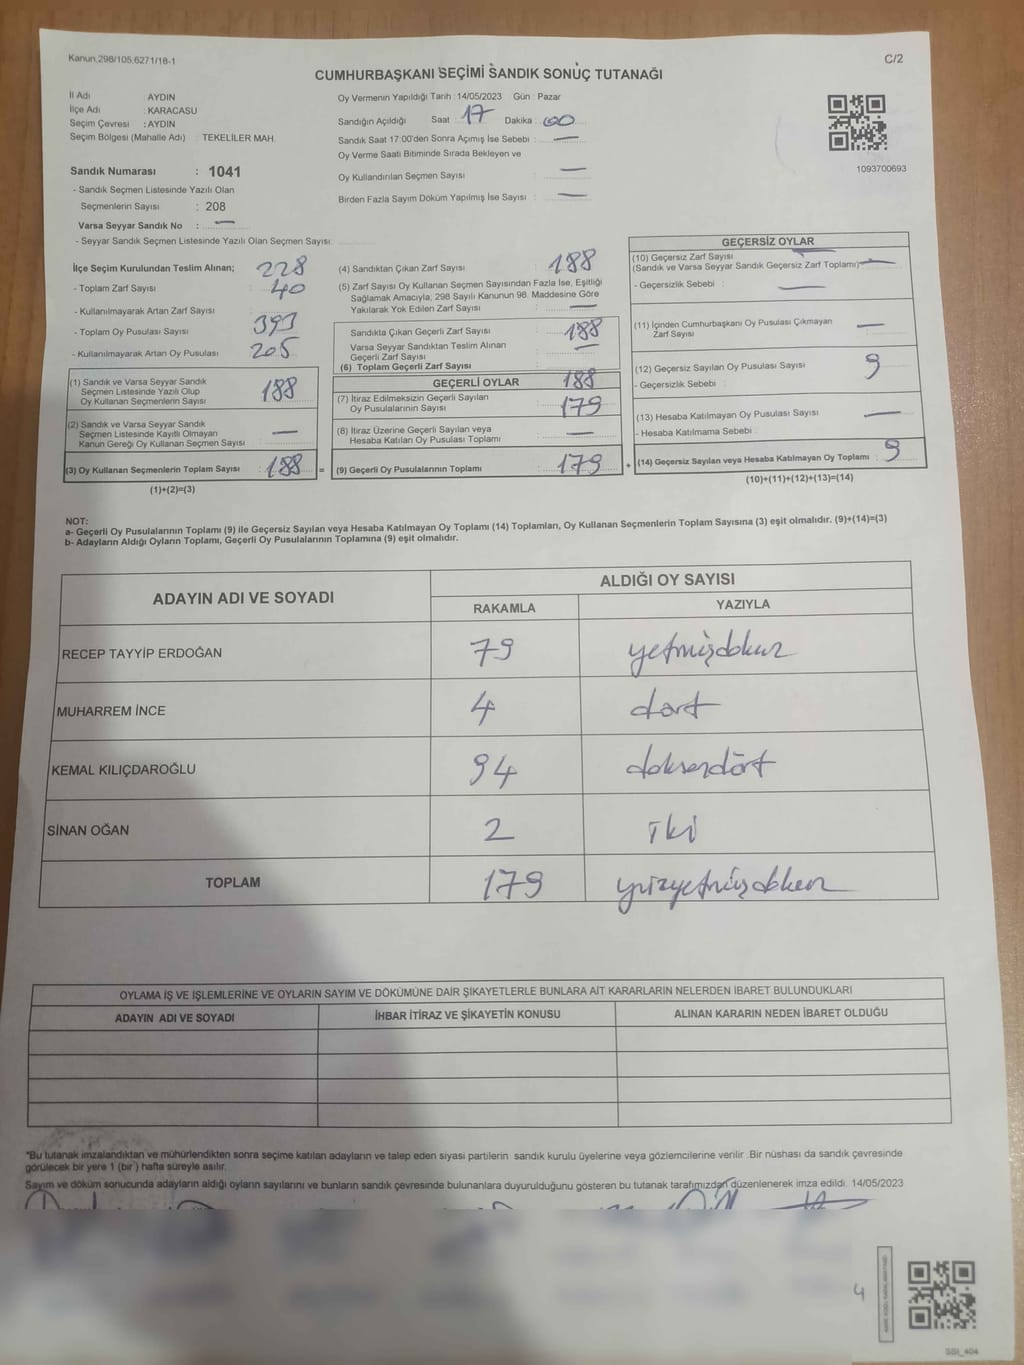 Kanun,298/105,6271/18-1
C/2
CUMHURBAŞKANI SEÇİMİ SANDIK SONUÇ TUTANAĞI
İl Adı AYDIN
İlçe Adı : KARACASU
Seçim Çevresi : AYDIN
Seçim Bölgesi (Mahalle Adı) : TEKELİLER MAH.
Sandık Numarası : 1041
- Sandık Seçmen Listesinde Yazılı Olan
Seçmenlerin Sayısı : 208
Varsa Seyyar Sandık No : —
- Seyyar Sandık Seçmen Listesinde Yazılı Olan Seçmen Sayısı:
Oy Vermenin Yapıldığı Tarih :14/05/2023 Gün : Pazar
Sandığın Açıldığı Saat : 17 Dakika : 00
Sandık Saat 17:00'den Sonra Açımış İse Sebebi : —
Oy Verme Saati Bitiminde Sırada Bekleyen ve
Oy Kullandırılan Seçmen Sayısı : —
Birden Fazla Sayım Döküm Yapılmış İse Sayısı : —
1093700693
İlçe Seçim Kurulundan Teslim Alınan;
- Toplam Zarf Sayısı 228
- Kullanılmayarak Artan Zarf Sayısı 40
- Toplam Oy Pusulası Sayısı 393
- Kullanılmayarak Artan Oy Pusulası 205
(1) Sandık ve Varsa Seyyar Sandık
Seçmen Listesinde Yazılı Olup
Oy Kullanan Seçmenlerin Sayısı 188
(2) Sandık ve Varsa Seyyar Sandık
Seçmen Listesinde Kayıtlı Olmayan
Kanun Gereği Oy Kullanan Seçmen Sayısı —
(3) Oy Kullanan Seçmenlerin Toplam Sayısı : 188 =
(1)+(2)=(3)
(4) Sandıktan Çıkan Zarf Sayısı : 188
(5) Zarf Sayısı Oy Kullanan Seçmen Sayısından Fazla İse, Eşitliği
Sağlamak Amacıyla; 298 Sayılı Kanunun 98. Maddesine Göre
Yakılarak Yok Edilen Zarf Sayısı : —
Sandıkta Çıkan Geçerli Zarf Sayısı : 188
Varsa Seyyar Sandıktan Teslim Alınan
Geçerli Zarf Sayısı —
(6) Toplam Geçerli Zarf Sayısı : 188
GEÇERLİ OYLAR
(7) İtiraz Edilmeksizin Geçerli Sayılan
Oy Pusulalarının Sayısı : 179
(8) İtiraz Üzerine Geçerli Sayılan veya
Hesaba Katılan Oy Pusulası Toplamı : —
(9) Geçerli Oy Pusulalarının Toplamı : 179 +
GEÇERSİZ OYLAR
(10) Geçersiz Zarf Sayısı
(Sandık ve Varsa Seyyar Sandık Geçersiz Zarf Toplamı) —
- Geçersizlik Sebebi : —
(11) İçinden Cumhurbaşkanı Oy Pusulası Çıkmayan
Zarf Sayısı —
(12) Geçersiz Sayılan Oy Pusulası Sayısı : 9
- Geçersizlik Sebebi :
(13) Hesaba Katılmayan Oy Pusulası Sayısı : —
- Hesaba Katılmama Sebebi :
(14) Geçersiz Sayılan veya Hesaba Katılmayan Oy Toplamı : 9
(10)+(11)+(12)+(13)=(14)
NOT:
a- Geçerli Oy Pusulalarının Toplamı (9) ile Geçersiz Sayılan veya Hesaba Katılmayan Oy Toplamı (14) Toplamları, Oy Kullanan Seçmenlerin Toplam Sayısına (3) eşit olmalıdır. (9)+(14)=(3)
b- Adayların Aldığı Oyların Toplamı, Geçerli Oy Pusulalarının Toplamına (9) eşit olmalıdır.
ADAYIN ADI VE SOYADI ALDIĞI OY SAYISI
RAKAMLA YAZIYLA
RECEP TAYYİP ERDOĞAN 79 yetmişdokuz
MUHARREM İNCE 4 dört
KEMAL KILIÇDAROĞLU 94 doksandört
SİNAN OĞAN 2 iki
TOPLAM 179 yüzyetmişdokuz
OYLAMA İŞ VE İŞLEMLERİNE VE OYLARIN SAYIM VE DÖKÜMÜNE DAİR ŞİKAYETLERLE BUNLARA AİT KARARLARIN NELERDEN İBARET BULUNDUKLARI
ADAYIN ADI VE SOYADI İHBAR İTİRAZ VE ŞİKAYETİN KONUSU ALINAN KARARIN NEDEN İBARET OLDUĞU
*Bu tutanak imzalandıktan ve mühürlendikten sonra seçime katılan adayların ve talep eden siyasi partilerin sandık kurulu üyelerine veya gözlemcilerine verilir .Bir nüshası da sandık çevresinde
görülecek bir yere 1 (bir ) hafta süreyle asılır.
Sayım ve döküm sonucunda adayların aldığı oyların sayılarını ve bunların sandık çevresinde bulunanlara duyurulduğunu gösteren bu tutanak tarafımızdan düzenlenerek imza edildi. 14/05/2023
4
SSI_404